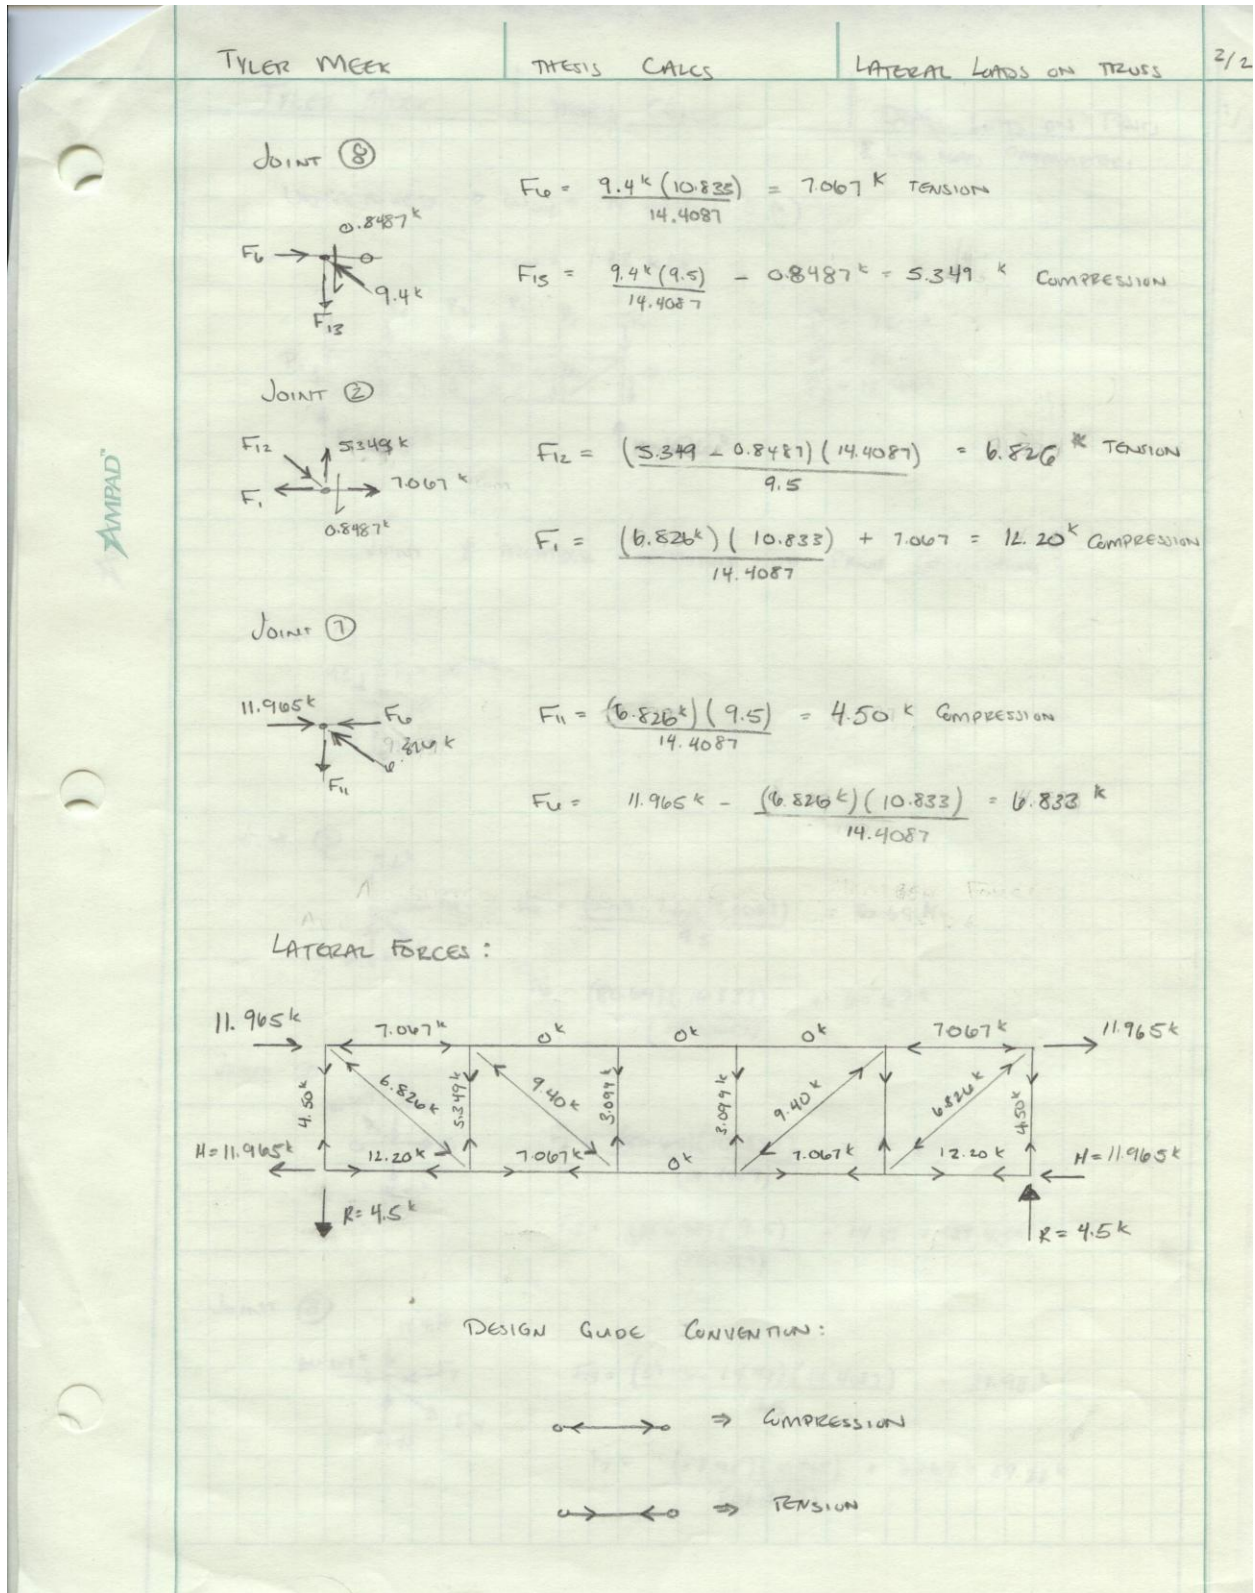 TYLER MEEK THESIS CALCS LATERAL LOADS ON TRUSS 2/2
JOINT 8
F6 = 9.4k (10.833) / 14.4087 = 7.067 K TENSION
0.8487k
F6
9.4k
F13
F13 = 9.4k (9.5) / 14.4087 - 0.8487k = 5.349 k COMPRESSION
JOINT 2
F12 5.349k
F1 7.067k
0.8487k
F12 = (5.349 - 0.8487)(14.4087) / 9.5 = 6.826 k TENSION
F1 = (6.826k)(10.833) / 14.4087 + 7.067 = 12.20k COMPRESSION
JOINT 7
11.965k F6
6.826k
F11
F11 = (6.826k)(9.5) / 14.4087 = 4.50 k COMPRESSION
F6 = 11.965k - (6.826k)(10.833) / 14.4087 = 6.833 k
LATERAL FORCES:
11.965k 7.067k 0k 0k 0k 7.067k 11.965k
4.50k 6.826k 5.349k 9.40k 3.099k 3.099k 9.40k 6.826k 4.50k
H=11.965k 12.20k 7.067k 0k 7.067k 12.20k H=11.965k
R=4.5k R=4.5k
DESIGN GUIDE CONVENTION:
⇒ COMPRESSION
⇒ TENSION
AMPAD™